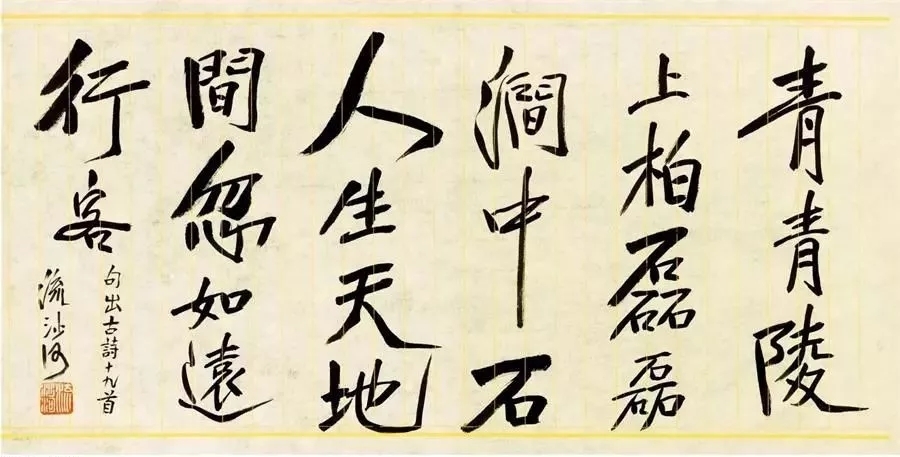 青青陵
上柏磊磊
澗中石
人生天地
間忽如遠
行客
句出古詩十九首
流沙河